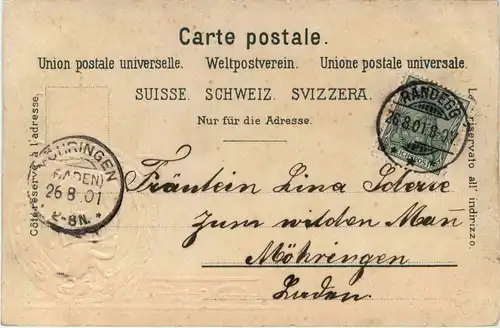 Carte postale.
Union postale universelle. Weltpostverein. Unione postale universale.
SUISSE. SCHWEIZ. SVIZZERA.
Nur für die Adresse.
Côté réservé à l'adresse.
Lato riservato all' indirizzo.
RANDEGG
26.8.01.8-9V
MÖHRINGEN
(BADEN)
26 8 01
2-8N.
Fräulein Lina
Zum wilden Mañ
Möhringen
Baden.